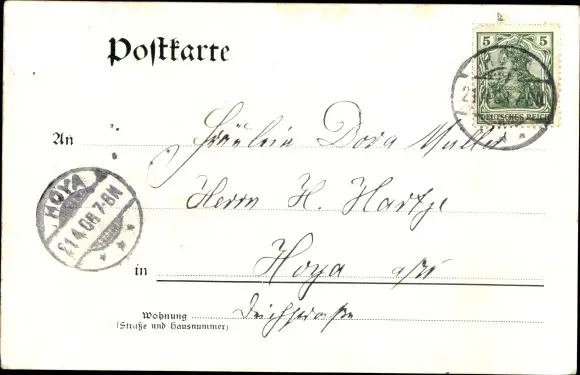 Postkarte
5 5
DEUTSCHES REICH
An Fräulein Dora Müller
Herrn H. Hartje
HOYA
21.4.08.7-8N
in Hoya a/W
Wohnung
(Straße und Hausnummer)
Deichstraße